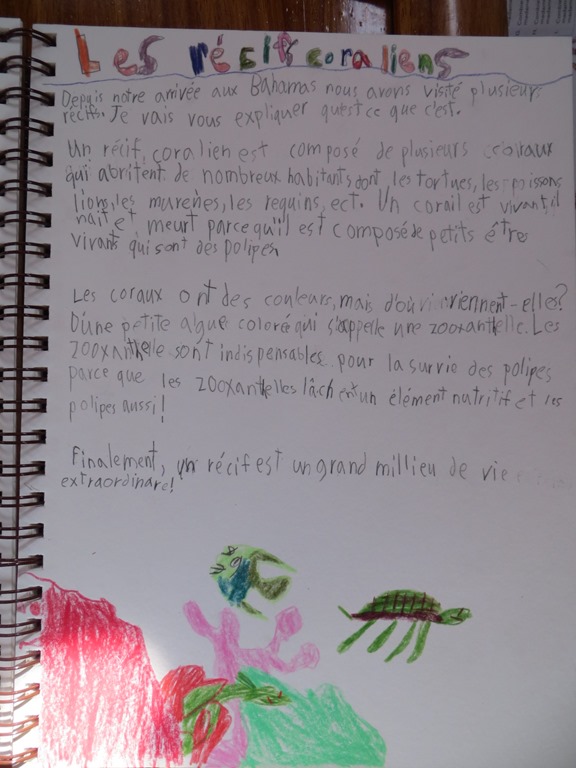 Les récifs coraliens
Depuis notre arrivée aux Bahamas nous avons visité plusieurs
récifs. Je vais vous expliquer qu'est ce que c'est.
Un récif coralien est composé de plusieurs coraux
qui abritent de nombreux habitants dont les tortues, les poissons
lions, les murènes, les requins, ect. Un corail est vivant il
nait et meurt parce qu'il est composé de petits être
vivants qui sont des polipes
Les coraux ont des couleurs, mais d'où viennent-elles?
D'une petite algue coloré qui s'appelle une zooxantelle. Les
zooxantelle sont indispensables pour la survie des polipes
parce que les zooxantelles lâchent un élément nutritif et les
polipes aussi!
Finalement, un récif est un grand millieu de vie
extraordinare!